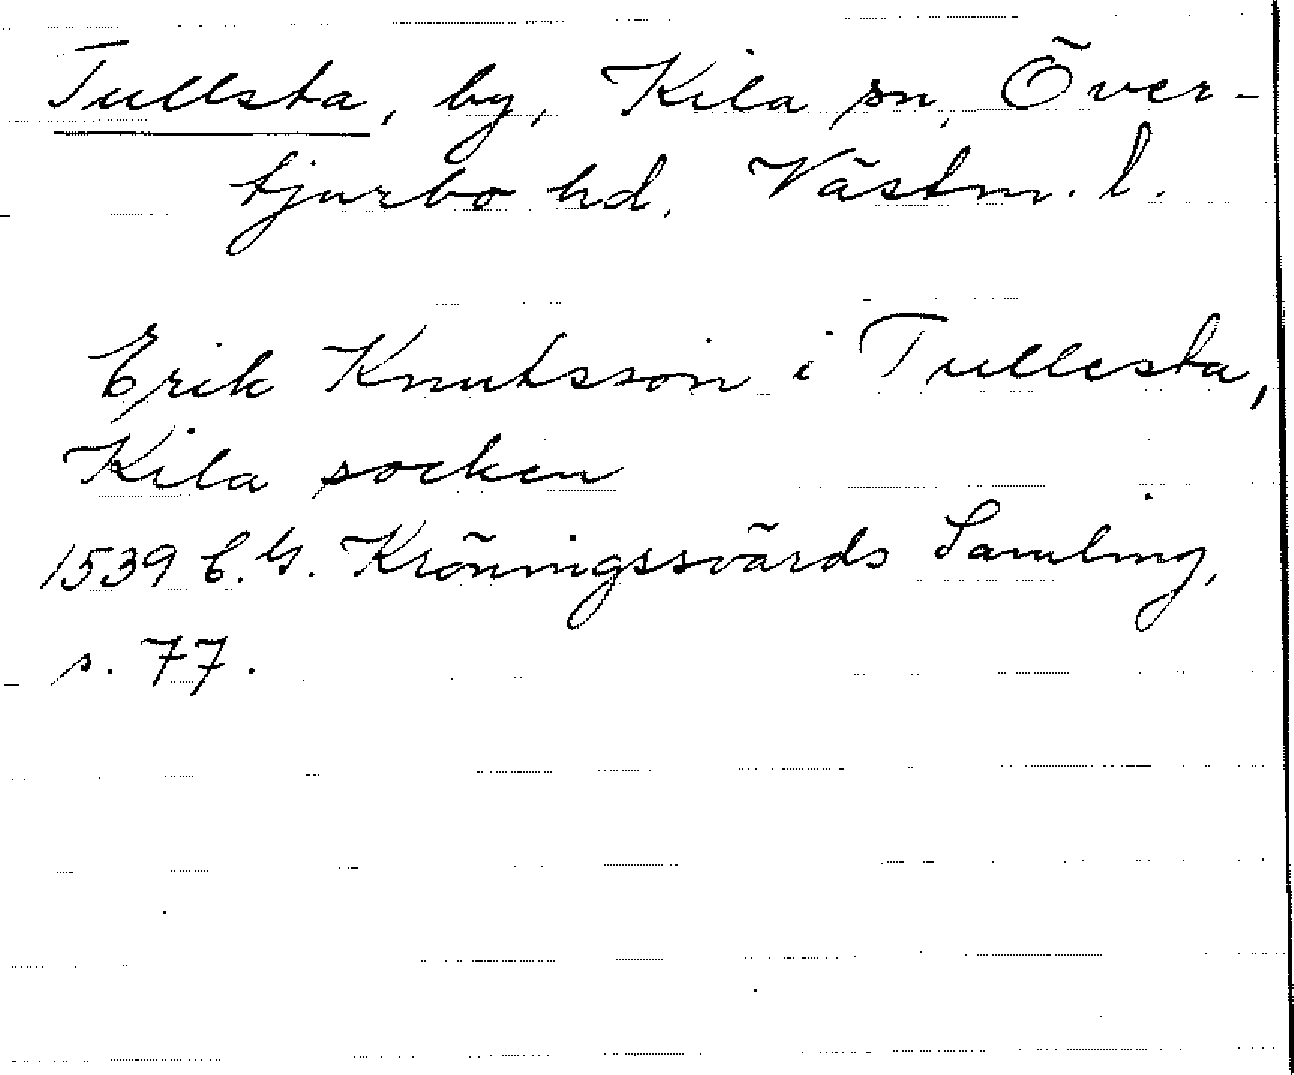 Tullsta, by, Kila sn, Över-
tjurbo hd. Västm. l.
Erik Knutsson i Tullesta,
Kila socken
1539 C.G. Kröningssvärds Samling,
s. 77.